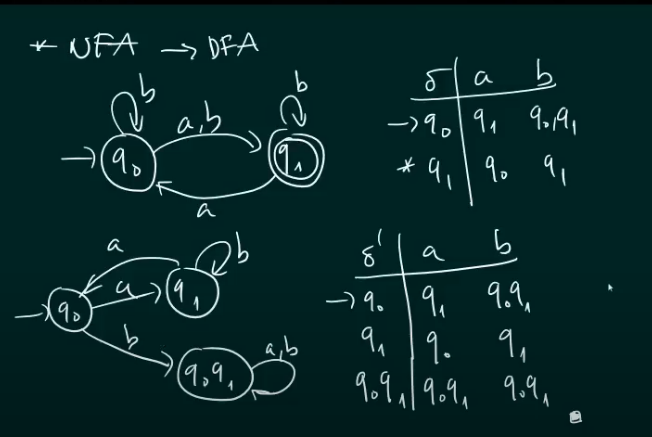 * NFA → DFA
b
b
a,b
→ q₀
q₁
a
δ a b
→ q₀ q₁ q₀,q₁
* q₁ q₀ q₁
a
b
a
→ q₀
q₁
b
a,b
q₀q₁
δ' a b
→ q₀ q₁ q₀q₁
q₁ q₀ q₁
q₀q₁ q₀q₁ q₀q₁